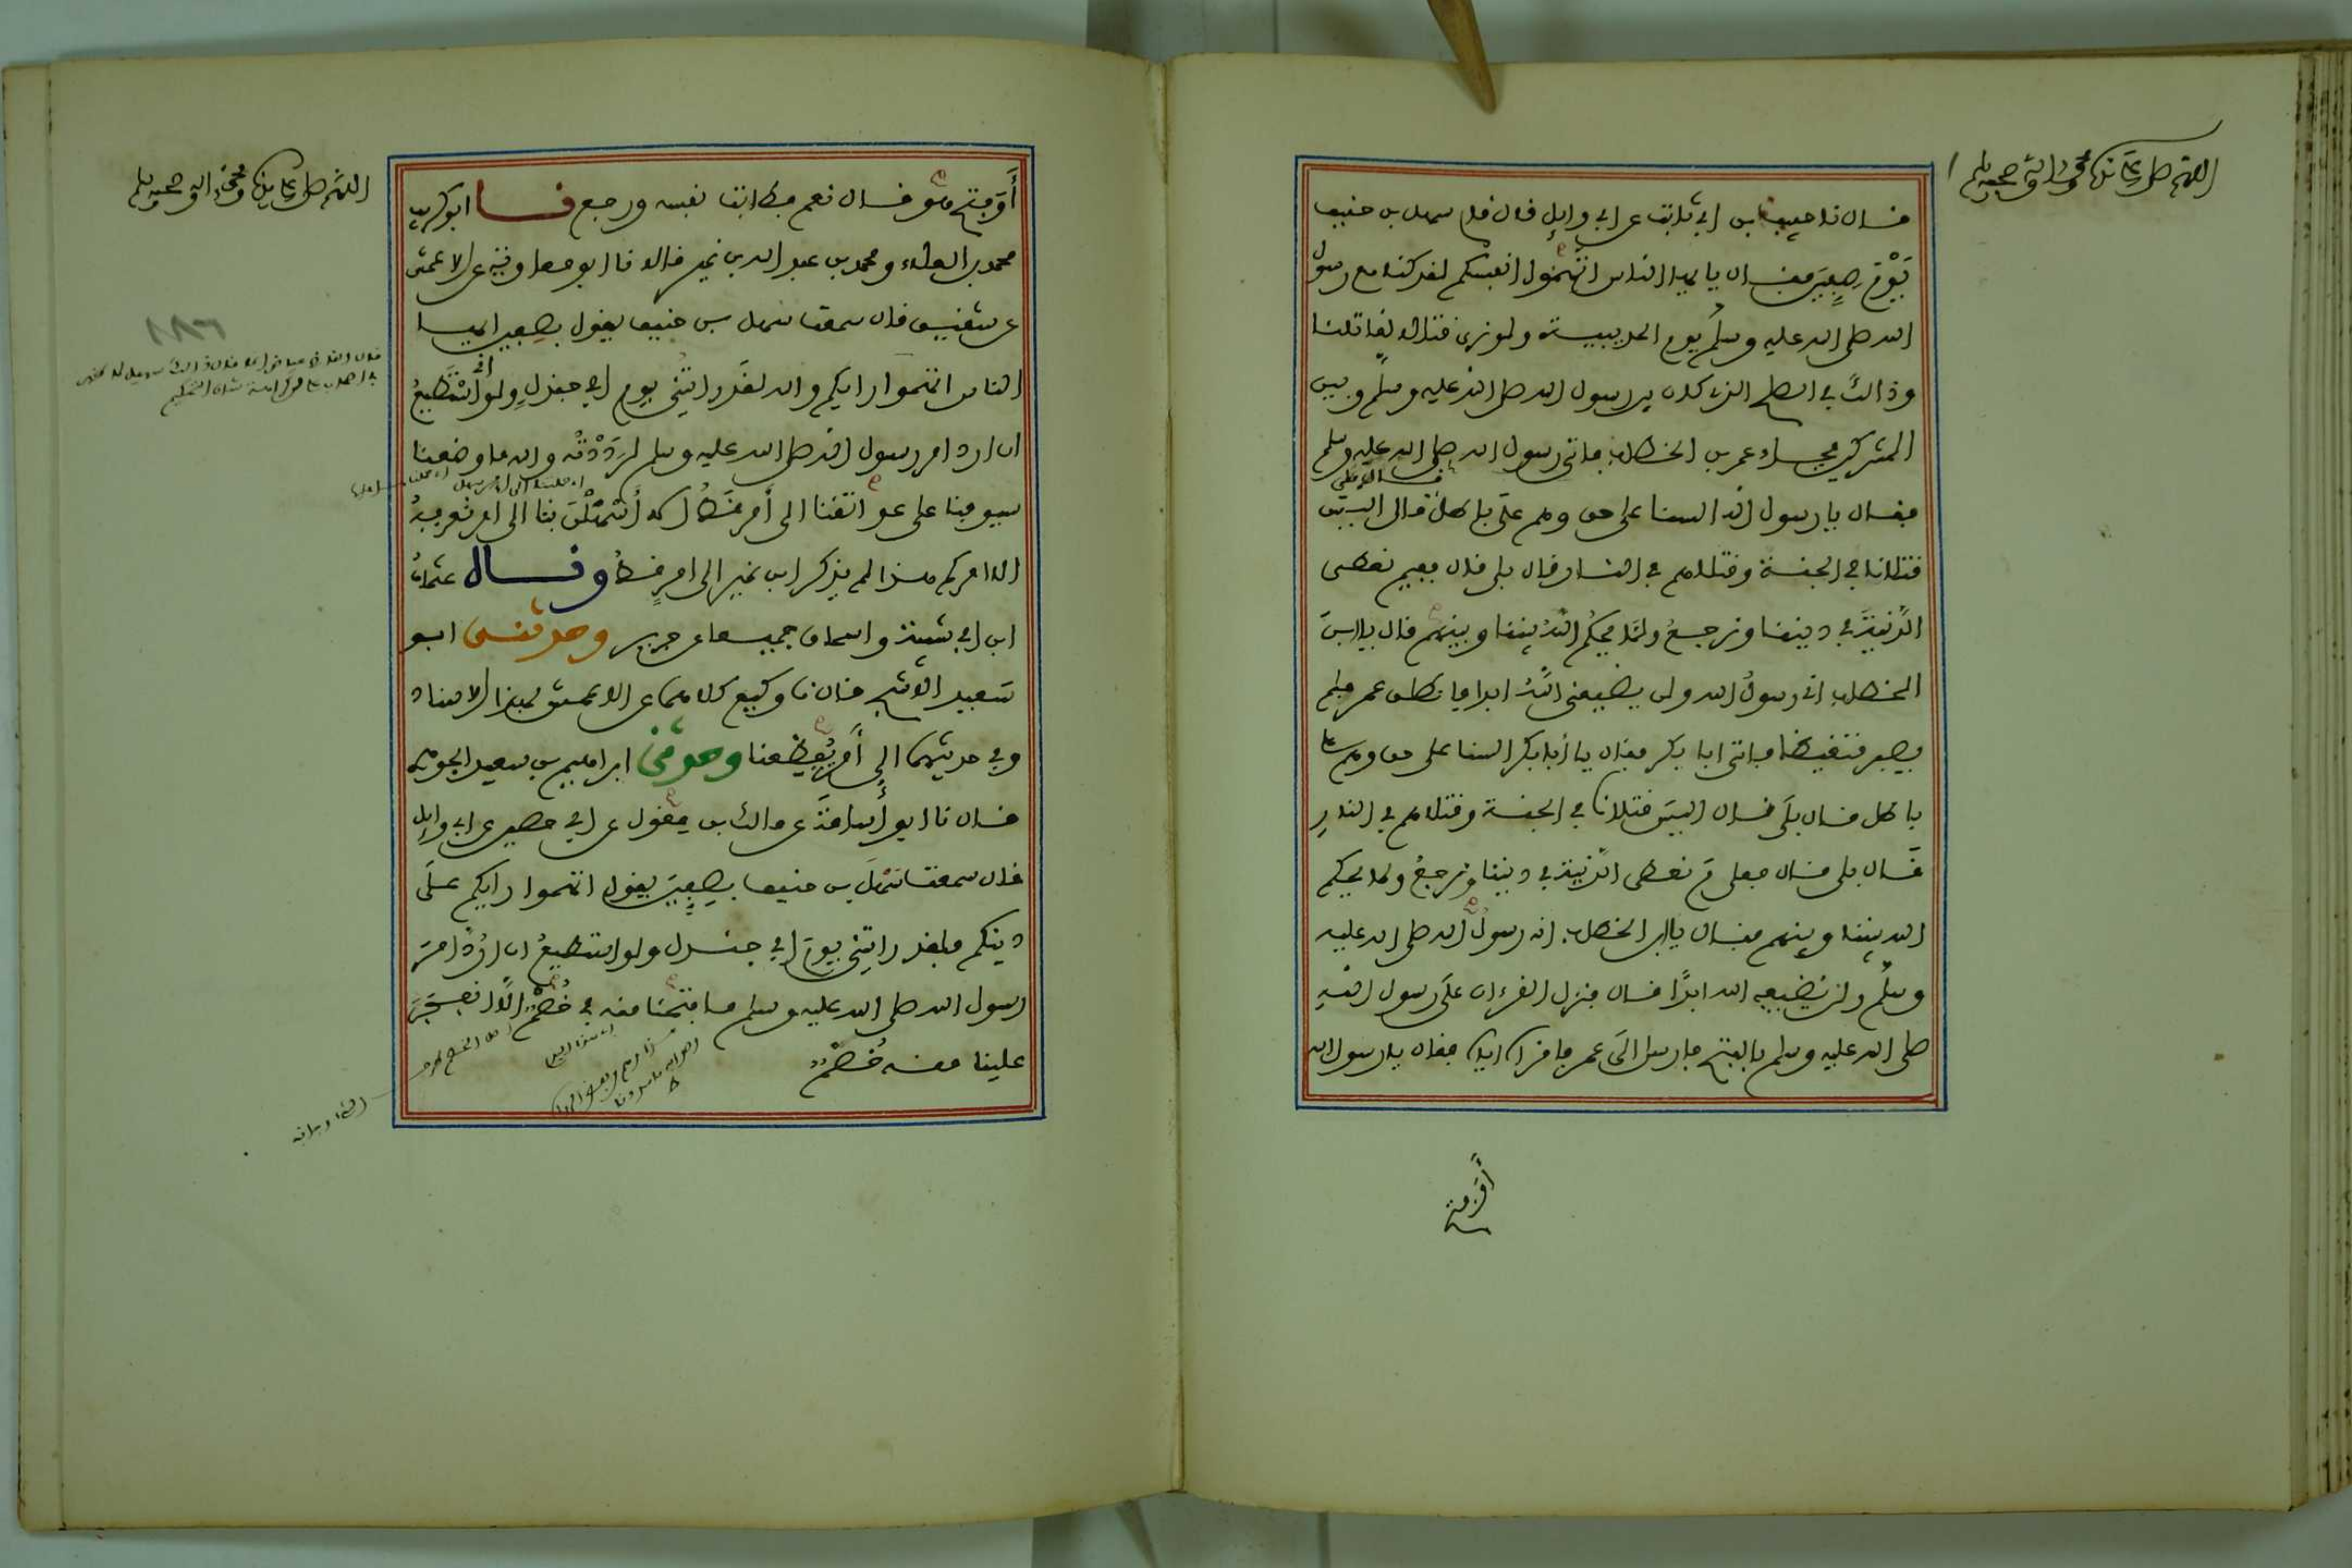 اللهم صل على سيدنا محمد وءاله وصحبه وسلم
قال نا حبيب بن ابي ثابت عن ابي وايل قال قام سهل بن حنيف
يَوْمَ صِفِّينَ فقال يا ايها الناس اتَّهِمُوا انفسكم لقد كنا مع رسول
الله صلى الله عليه وسلم يوم الحديبية ولو نرى قتالا لقاتلنا
وذالك في الصلح الذي كان بين رسول الله صلى الله عليه وسلم وبين
المشركين فجاء عمر بن الخطاب فاتى رسول الله صلى الله عليه وسلم
فقال يا رسول الله السنا على حق وهم على باطل قال بلى قال اليس
قتلانا في الجنة وقتلاهم في النار قال بلى قال ففيم نعطى
الدَّنِيَّةَ في ديننا ونرجعُ ولمَّا يحكُمِ اللهُ بيننا وبينهم قال يا ابنَ
الخطاب اني رسولُ الله ولن يضيعني اللهُ ابدا فانطلق عمر فلم
يصبر متغيظا فاتى ابا بكر فقال يا أبا بكر السنا على حق وهم على
باطل قال بلَى قال اليسَ قتلانا في الجنة وقتلاهم في النارِ
قَال بلى قال فعلى مَ نعطى الدَّنِيَّةَ في ديننا ونرجعُ ولما يحكم
الله بيننا وبينهم فقال يا ابن الخطاب انه رسولُ الله صلى الله عليه
وسلم ولن يُضيعه الله ابدًا قال فنزل القرءان علَى رسول اللهِ
صلى الله عليه وسلم بالفتح فارسل الَى عمر فاقراه اياه فقال يا رسول الله
أَوَفتح
اللهم صل على سيدنا محمد وءاله وصحبه وسلم
أَوَفتح هو قال نعم فطابت نفسه ورجع نا ابو كريب
محمد بن العلاء ومحمد بن عبد الله بن نمير قالا نا ابو معاوية عن الاعمش
عن شقيق قال سمعت سهل بن حنيف يقول بصِفين ايها
الناس اتهموا رايكم والله لقَد رايتُني يوم ابي جندلٍ ولو اني اسْتَطيعُ
ان ارد امر رسول الله صلى الله عليه وسلم لرَدَدْتُه والله ما وضعنا
سيوفنا على عواتقنا الى أَمر قَطُّ الا أَسْهَلْنَ بنا الى امر نعرفه
الا امركم هذا لم يذكر ابن نمير الى امرٍ قط وقال عثمانُ
ابن ابي شيبة واسحاق جميعا عن جرير وحدثنى ابو
سَعيد الاشج قال نا وكيع كلاهما عن الاعمش بهذا الاسناد
وفي حديثهما الى أَمر يُفْظِعنا وحدثنى ابراهيم بن سعيد الجوهري
قال نا ابو أُسامَةَ عن مالك بن مِغْول عن ابي حصين عن ابي وايل
قال سمعت سَهْلَ بن حنيف بِصِفِّينَ يقول اتهموا رايكم علَى
دينكم فلقد رايتني يومَ ابي جندل ولو استطيعُ ان اردَّ امرَ
رسول الله صلى الله عليه وسلم ما فتحنا منه في خُصْمٍ الَّا انفجَرَ
علينا منه خُصْمٌ